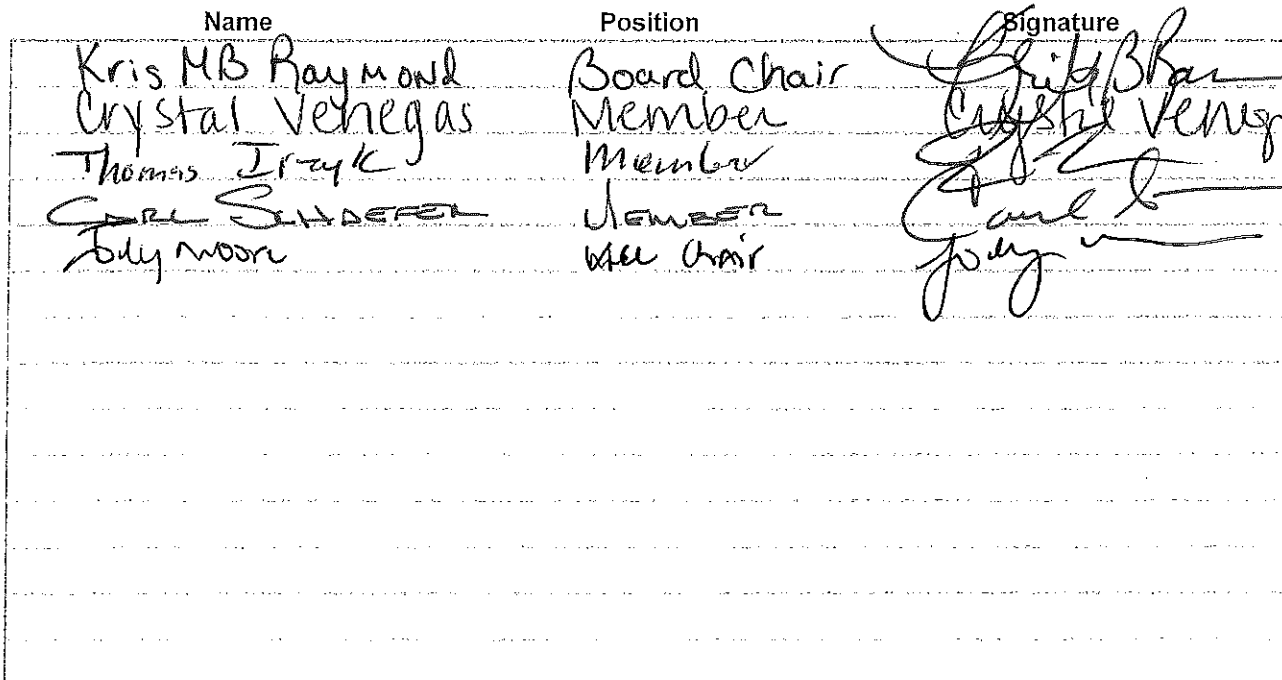 Name Position Signature
Kris MB Raymond Board Chair
Crystal Venegas Member Crystal Veneg
Thomas Member
CARL SCHAEFER MEMBER Carl
Jody Moore Chair Jody